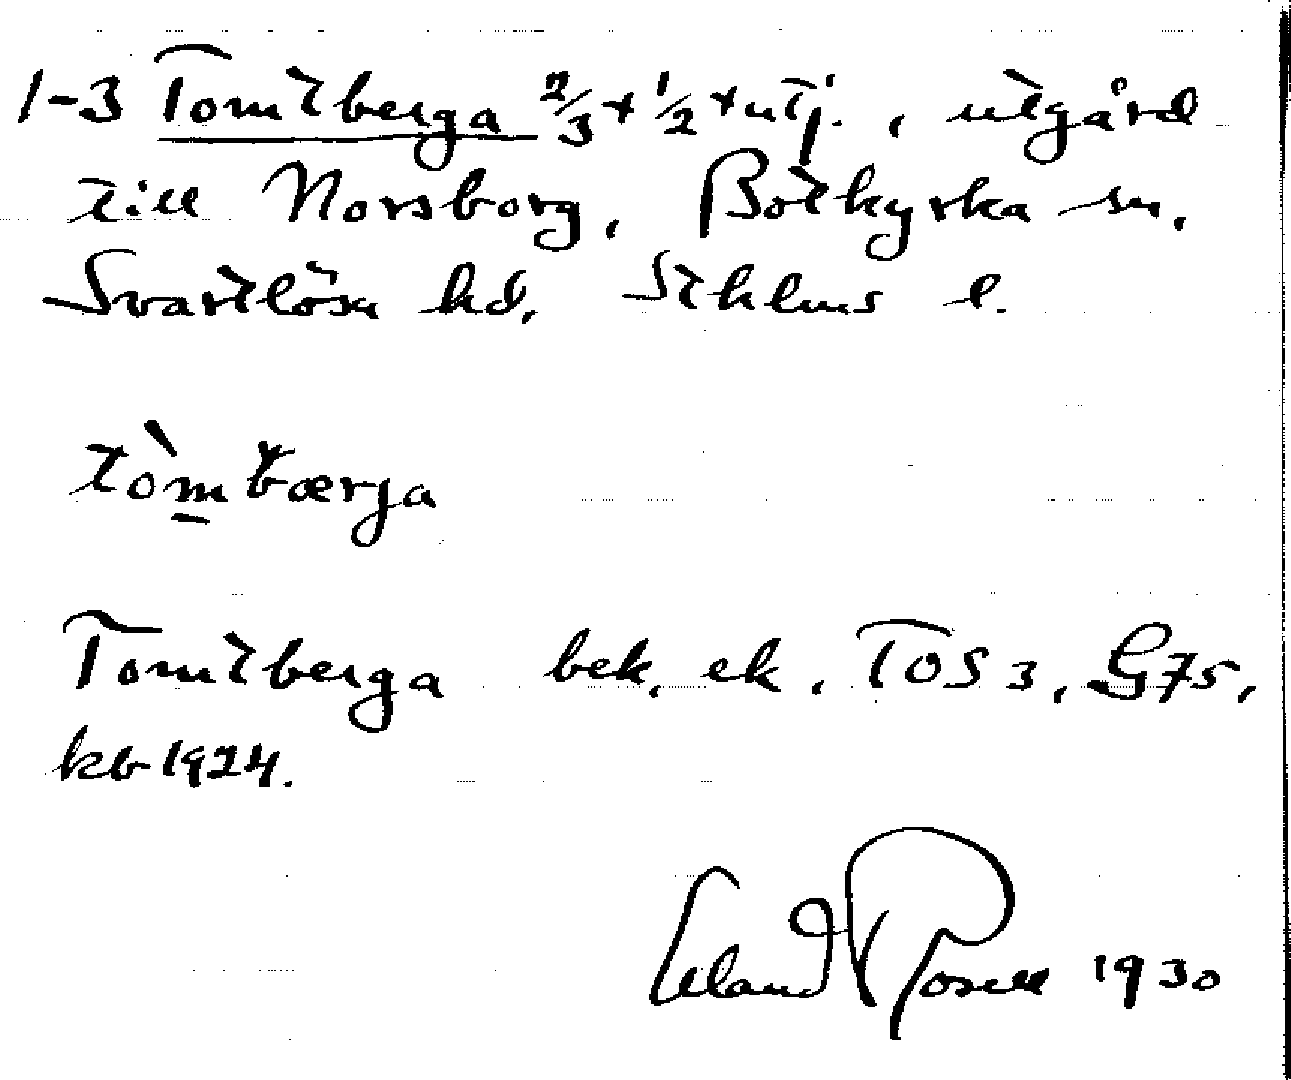 1-3 Tomtberga 2/3 + 1/2 + utj., utgård
till Norsborg, Botkyrka sn,
Svartlösa hd, Sthlms l.
tòmbærja
Tomtberga bek. ek, TOS 3, G75,
kb 1924.
Erland Rosell 1930